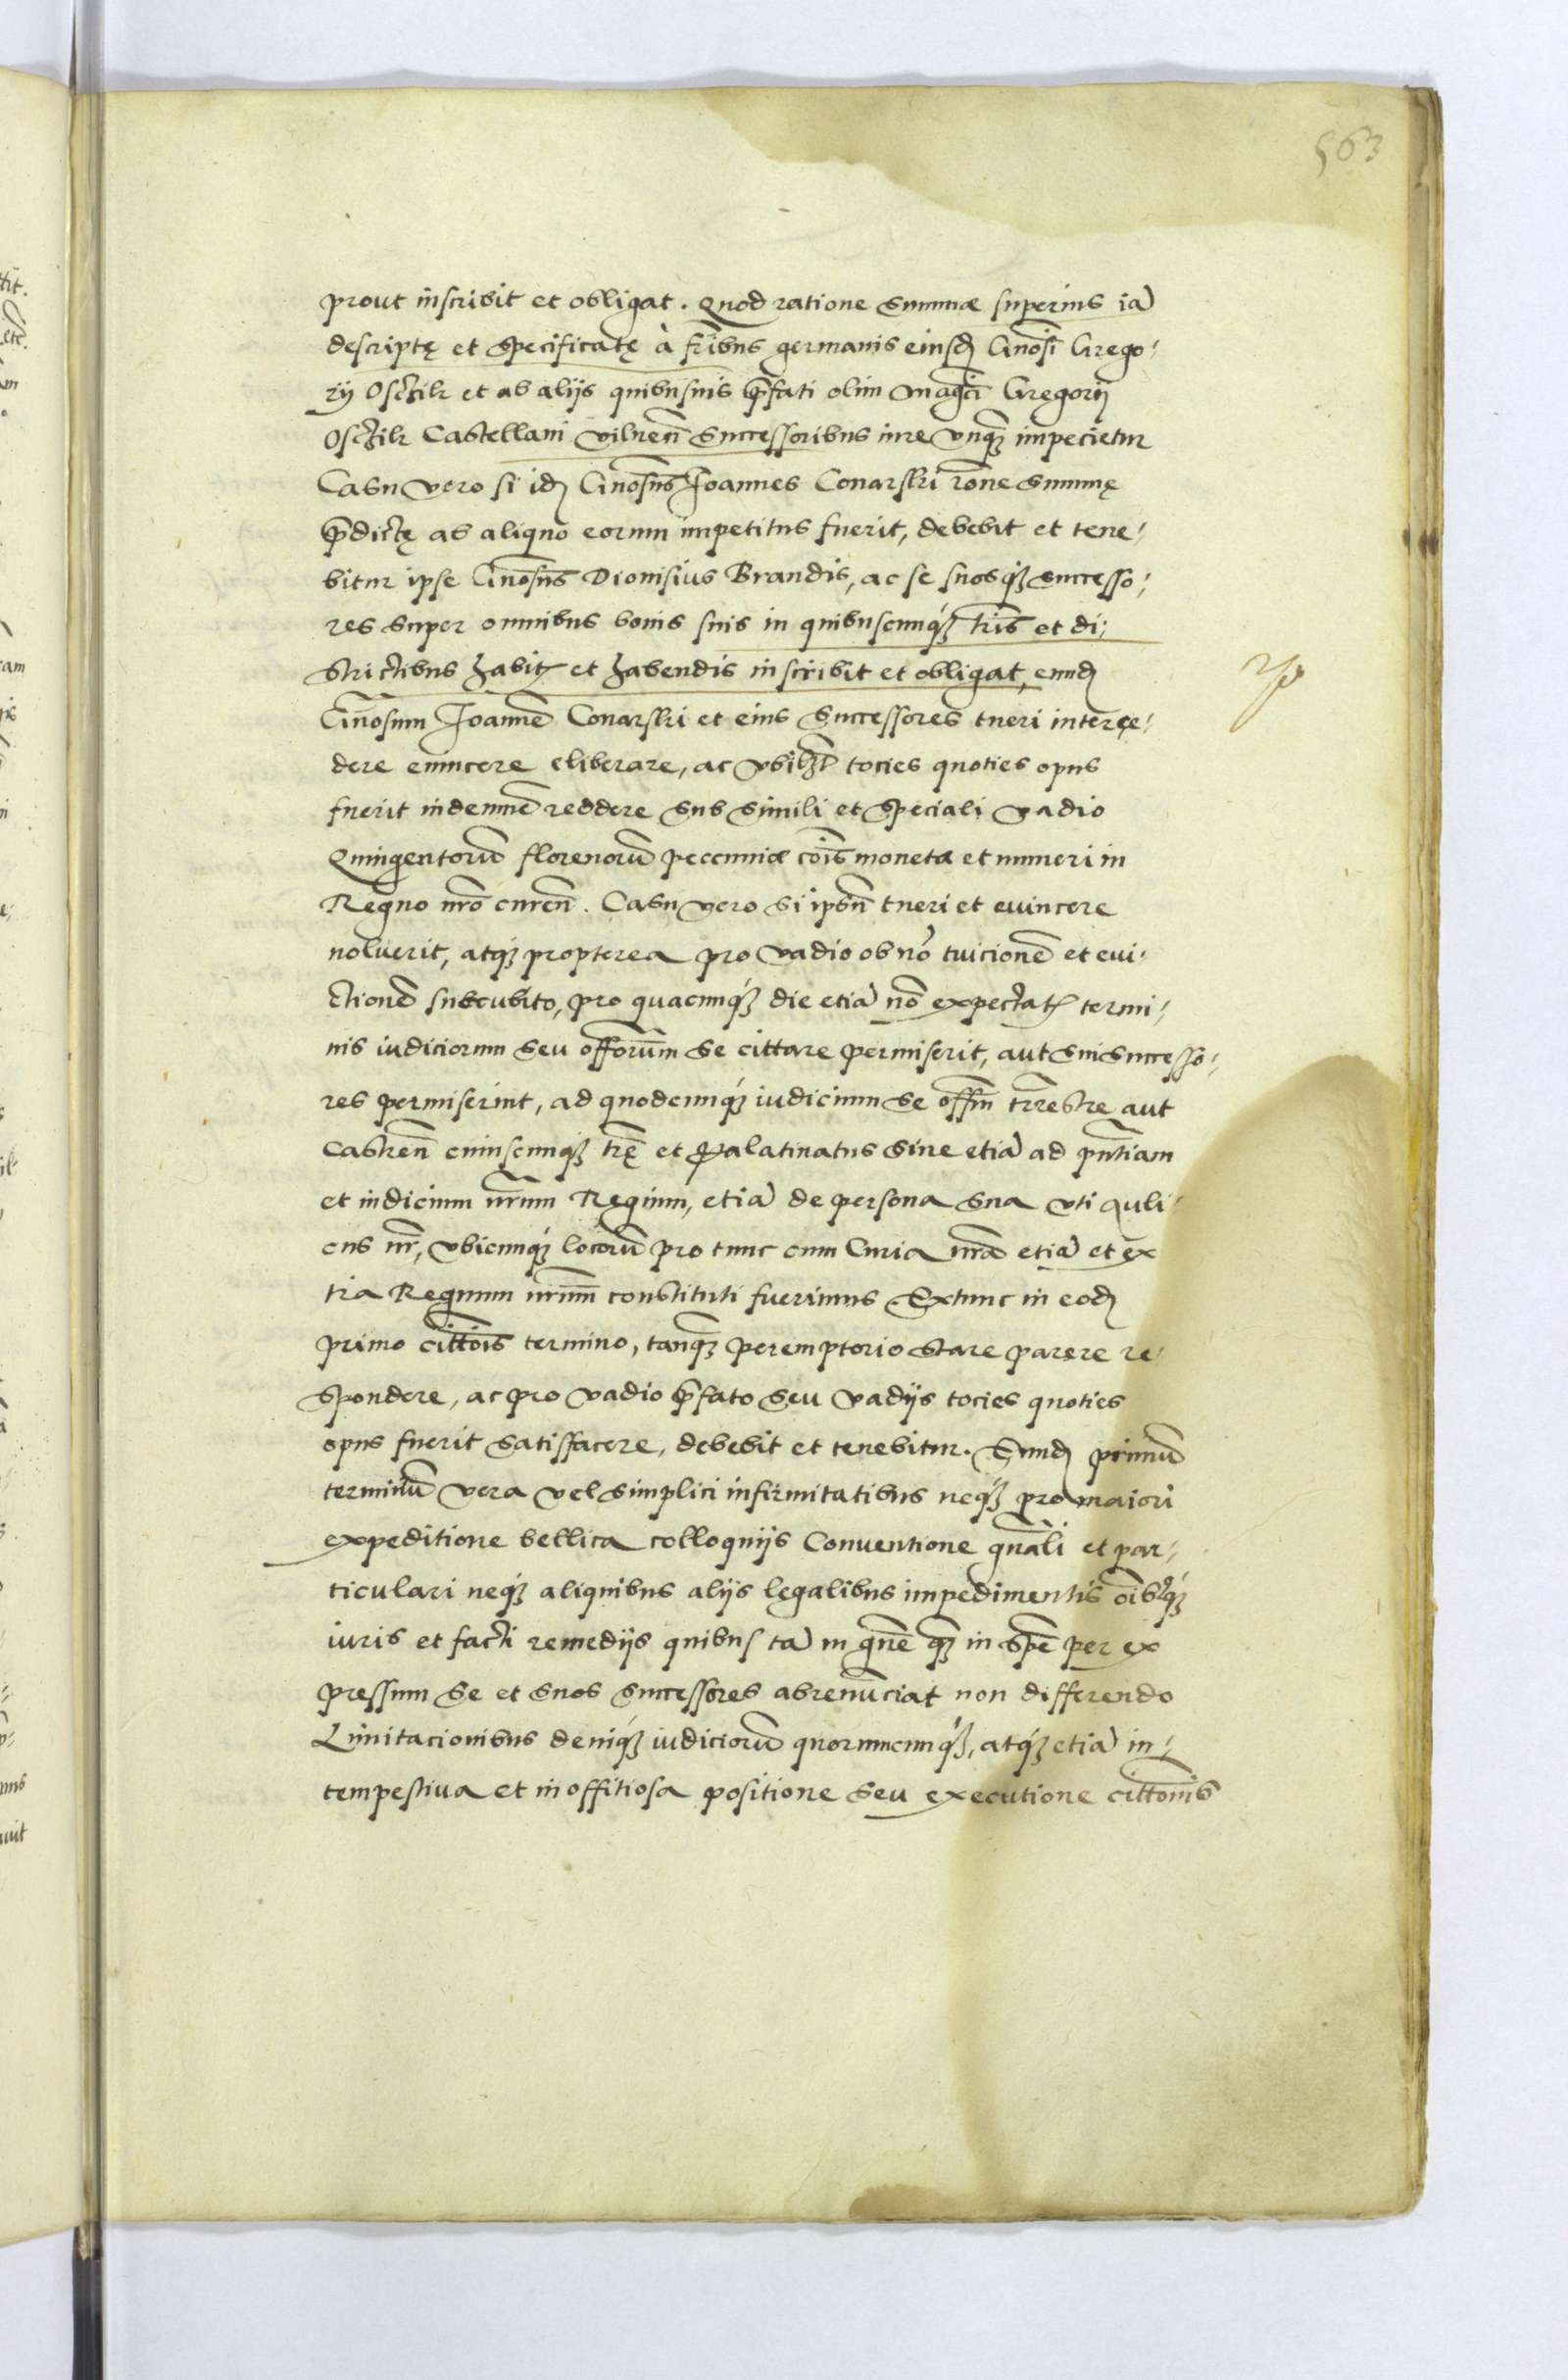 563
prout inscribit et obligat. Quod ratione summæ superius iã
descriptę et specificatę à fribus germanis eiusd Gnosi Grego-
rij Osczik et ab alijs quibusuis pfati olim Magci Gregorij
Osczik Castellani Vilneñ Successoribus iure vnq impecietur
Casu vero si id Gnosus Joannes Conarski rone summę
pdictę ab aliquo eorum impetitus fuerit, debebit et tene-
bitur ipse Gnosus Dionisius Brandis, ac se suosq successo-
res super omnibus bonis suis in quibuscumq tris et di-
strictibus habit et habendis inscribit et obligat, eund
Gnosum Joannẽ Conarski et eius successores tueri interce-
dere euincere eliberare, ac vbilibt tocies quoties opus
fuerit indemnẽ reddere sub simili et speciali vadio
Quingentorũ florenorũ pecuniæ cois monetæ et numeri in
Regno nro curen. Casu vero si ipsũ tueri et euincere
noluerit, atq propterea pro vadio ob nõ tuicionẽ et eui-
ctionẽ subcubito, pro quacumq die etiã nõ expectat termi-
nis iudiciorum seu offorum se cittare permiserit, aut sui successo-
res permiserint, ad quodcumq iudicium se offm trrestre aut
Castreñ cuiuscumq trę et Palatinatus siue etiã ad pntiam
et iudicium nrum Regium, etiã de persona sua vti auli-
cus nr, vbicumq locorũ pro tunc cum Curia nra etiã et ex
tra Regnum nrum constituti fuerimus. Extunc in eod
primo cittois termino, tanq peremptorio stare parere re-
spondere, ac pro vadio pfato seu vadijs tocies quoties
opus fuerit satisfacere, debebit et tenebitur. Eund primũ
terminũ vera vel simplici infirmitatibus neq pro maiori
expeditione bellica colloquijs Conuentione gnali et par-
ticulari neq aliquibus alijs legalibus impedimentis oibusq
iuris et facti remedijs quibus tã in gñe q in spẽ per ex
pressum se et suos successores abrenũciat non differendo
Limitacionibus deniq iudiciorũ quorumcumq, atq etiã in-
tempestiua et inoffitiosa positione seu executione cittonis